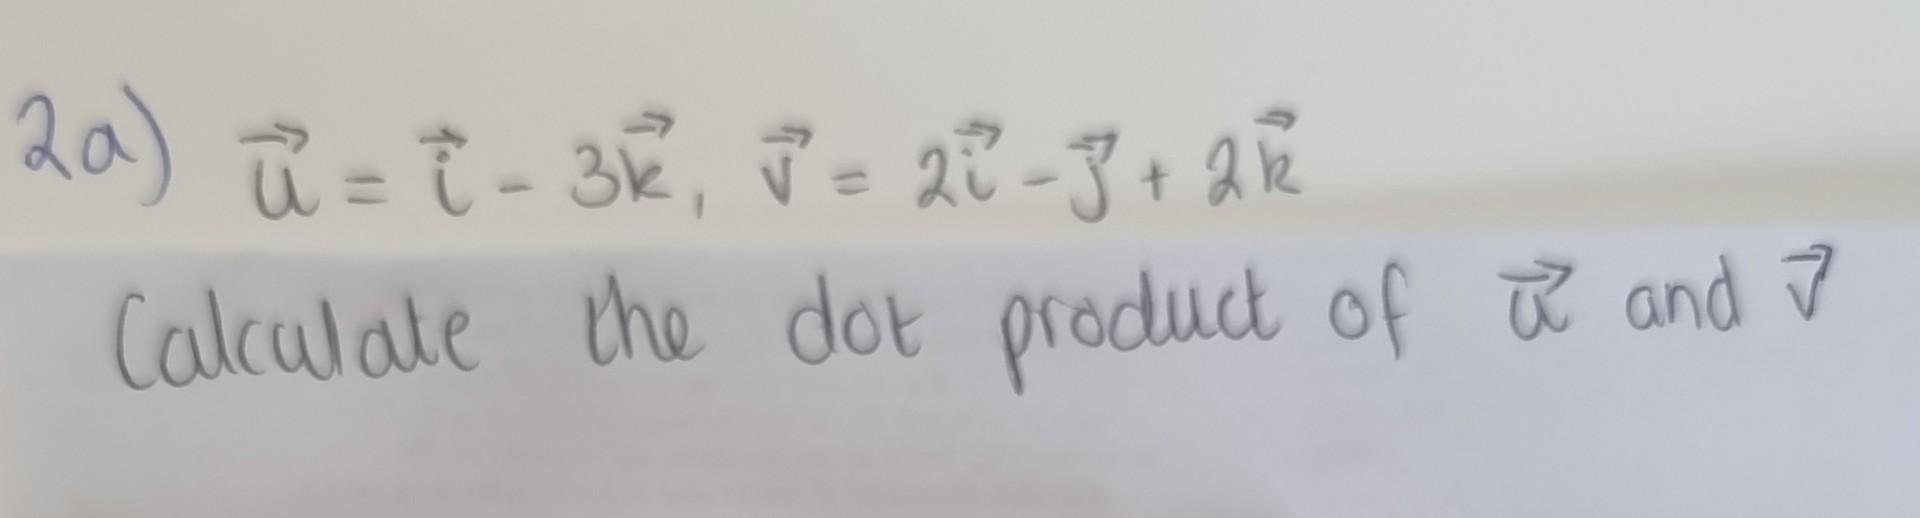 2a) u⃗ = i⃗ - 3k⃗, v⃗ = 2i⃗ - j⃗ + 2k⃗
Calculate the dot product of u⃗ and v⃗